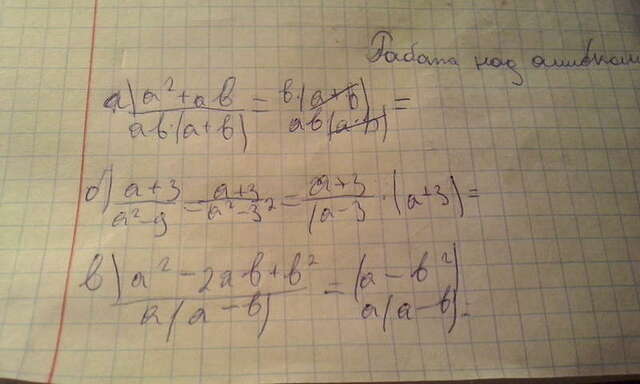 Работа над ошибками
а) a² + ab / ab·(a+b) = b·(a+b) / ab(a+b) =
б) a+3 / a²-9 = a+3 / a²-3² = a+3 / (a-3·(a+3) =
в) a² - 2ab + b² / a(a-b) = (a-b²) / a(a-b) =